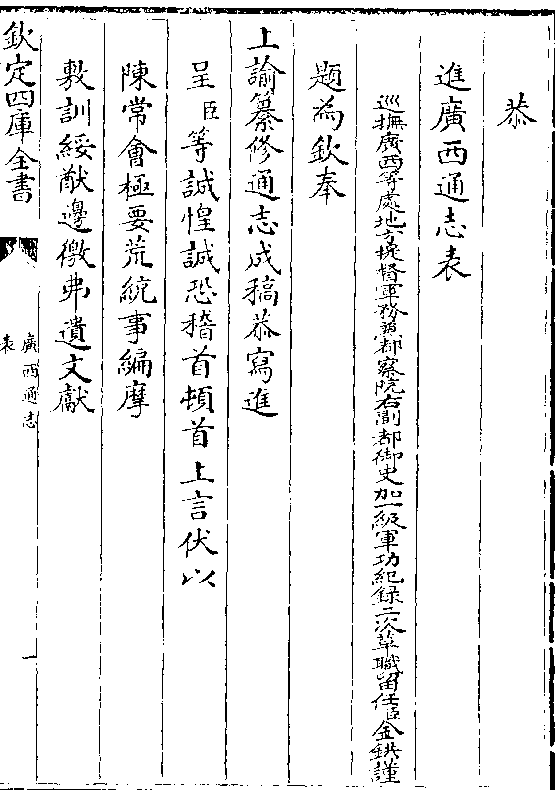 恭
進廣西通志表
巡撫廣西等處地方提督軍務兼都察院右副都御史加一級軍功紀録二次革職留任臣金鉷謹
題為欽奉
上諭纂修通志成稿恭寫進
呈臣等誠惶誠恐稽首頓首上言伏以
陳常會極要荒統事編摩
敷訓綏猷邊徼弗遺文獻
欽定四庫全書
廣西通志
表
一